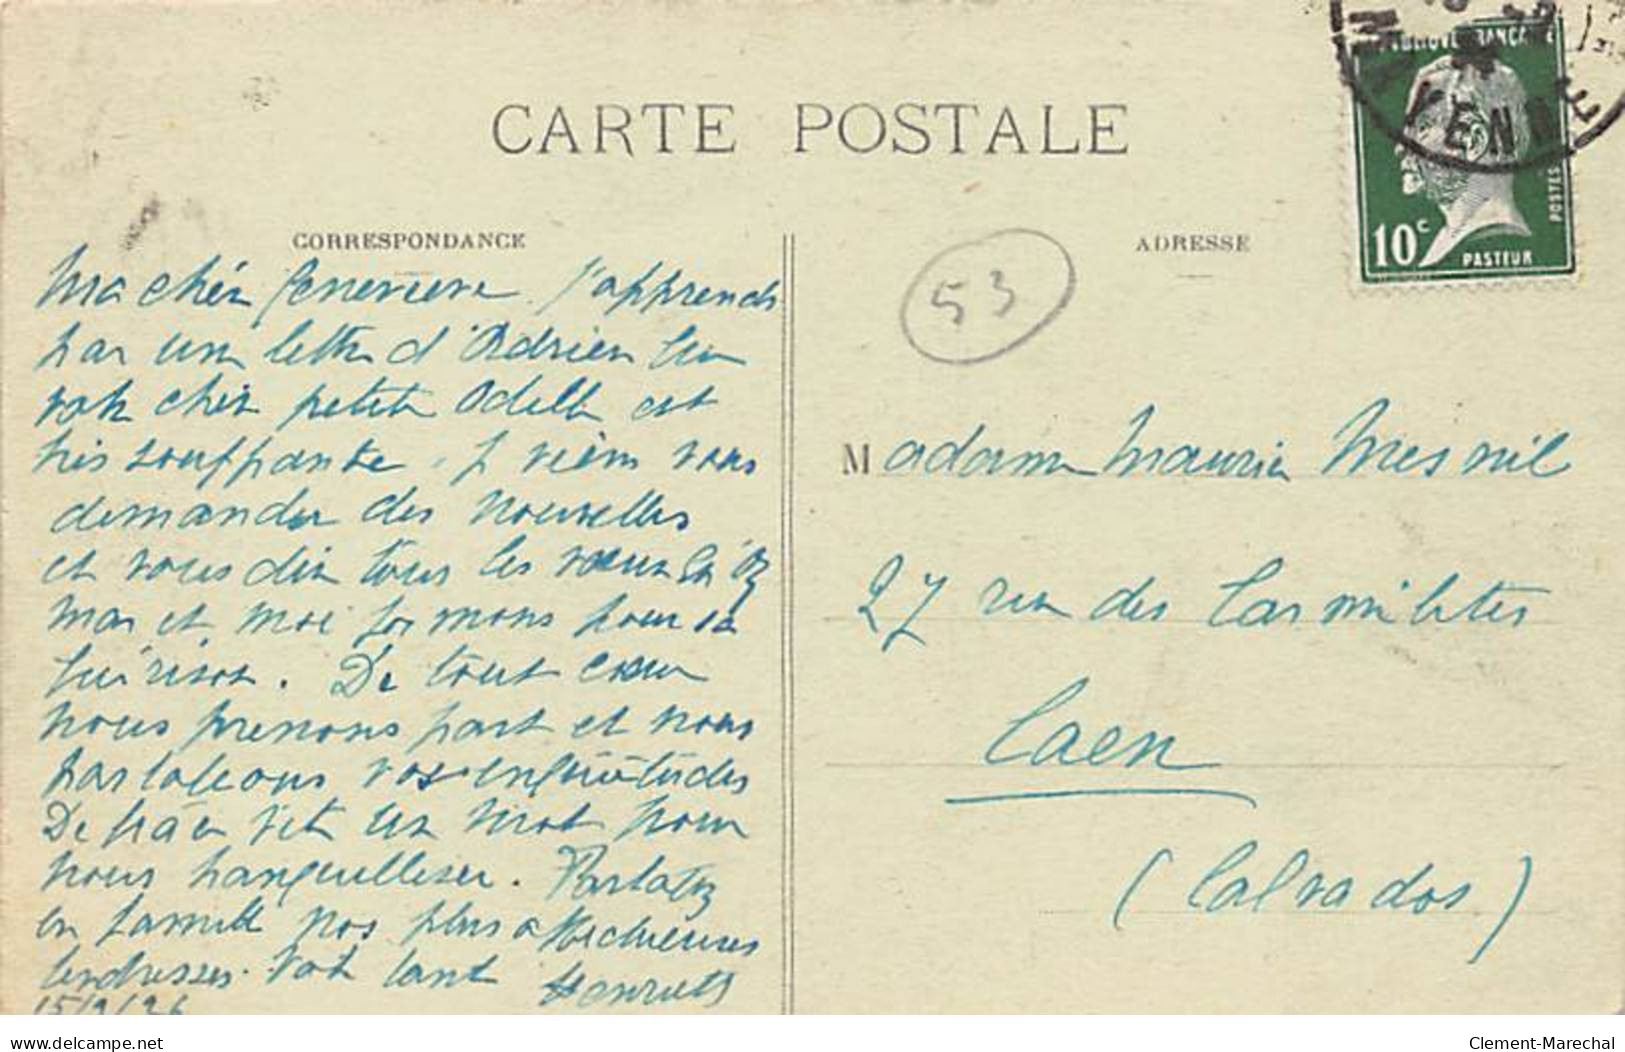 CARTE POSTALE
RÉPUBLIQUE FRANÇAISE
MAYENNE
POSTES
10c
PASTEUR
CORRESPONDANCE
ADRESSE
53
Ma chère Geneviève. J'apprends
par une lettre d'Adrien que
votre chère petite Odette est
très souffrante. Je viens vous
demander des nouvelles
et vous dire tous les vœux que
mar et moi formons pour sa
guérison. De tout cœur
nous prenons part et nous
partageons vos inquiétudes
De grâce vite un mot pour
nous tranquilliser. Partagez
en famille nos plus affectueuses
tendresses. Votre tante Henriette
15/9/26
Madame Maurice Mesnil
27 rue des Carmélites
Caen
(Calvados)
delcampe.net
Clement-Marechal